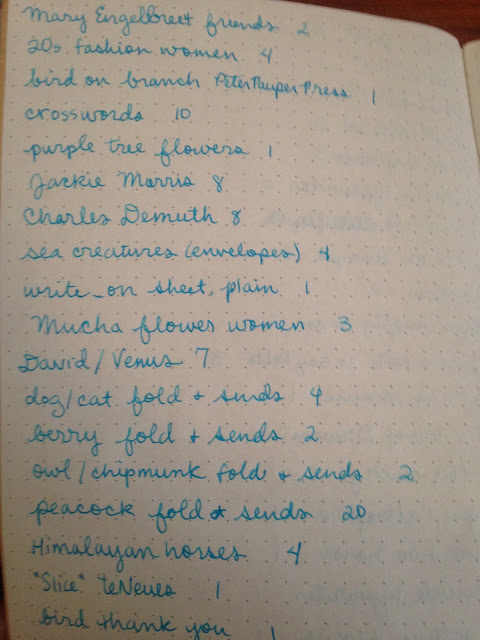 Mary Engelbreit friends 2
20s fashion women 4
bird on branch Peter Pauper Press 1
crosswords 10
purple tree flowers 1
Jackie Morris 8
Charles Demuth 8
sea creatures (envelopes) 4
write-on sheet, plain 1
Mucha flower women 3
David/Venus 7
dog/cat fold + sends 4
berry fold + sends 2
owl/chipmunk fold + sends 2
peacock fold + sends 20
Himalayan horses 4
"Slice" teNeues 1
bird thank you 1